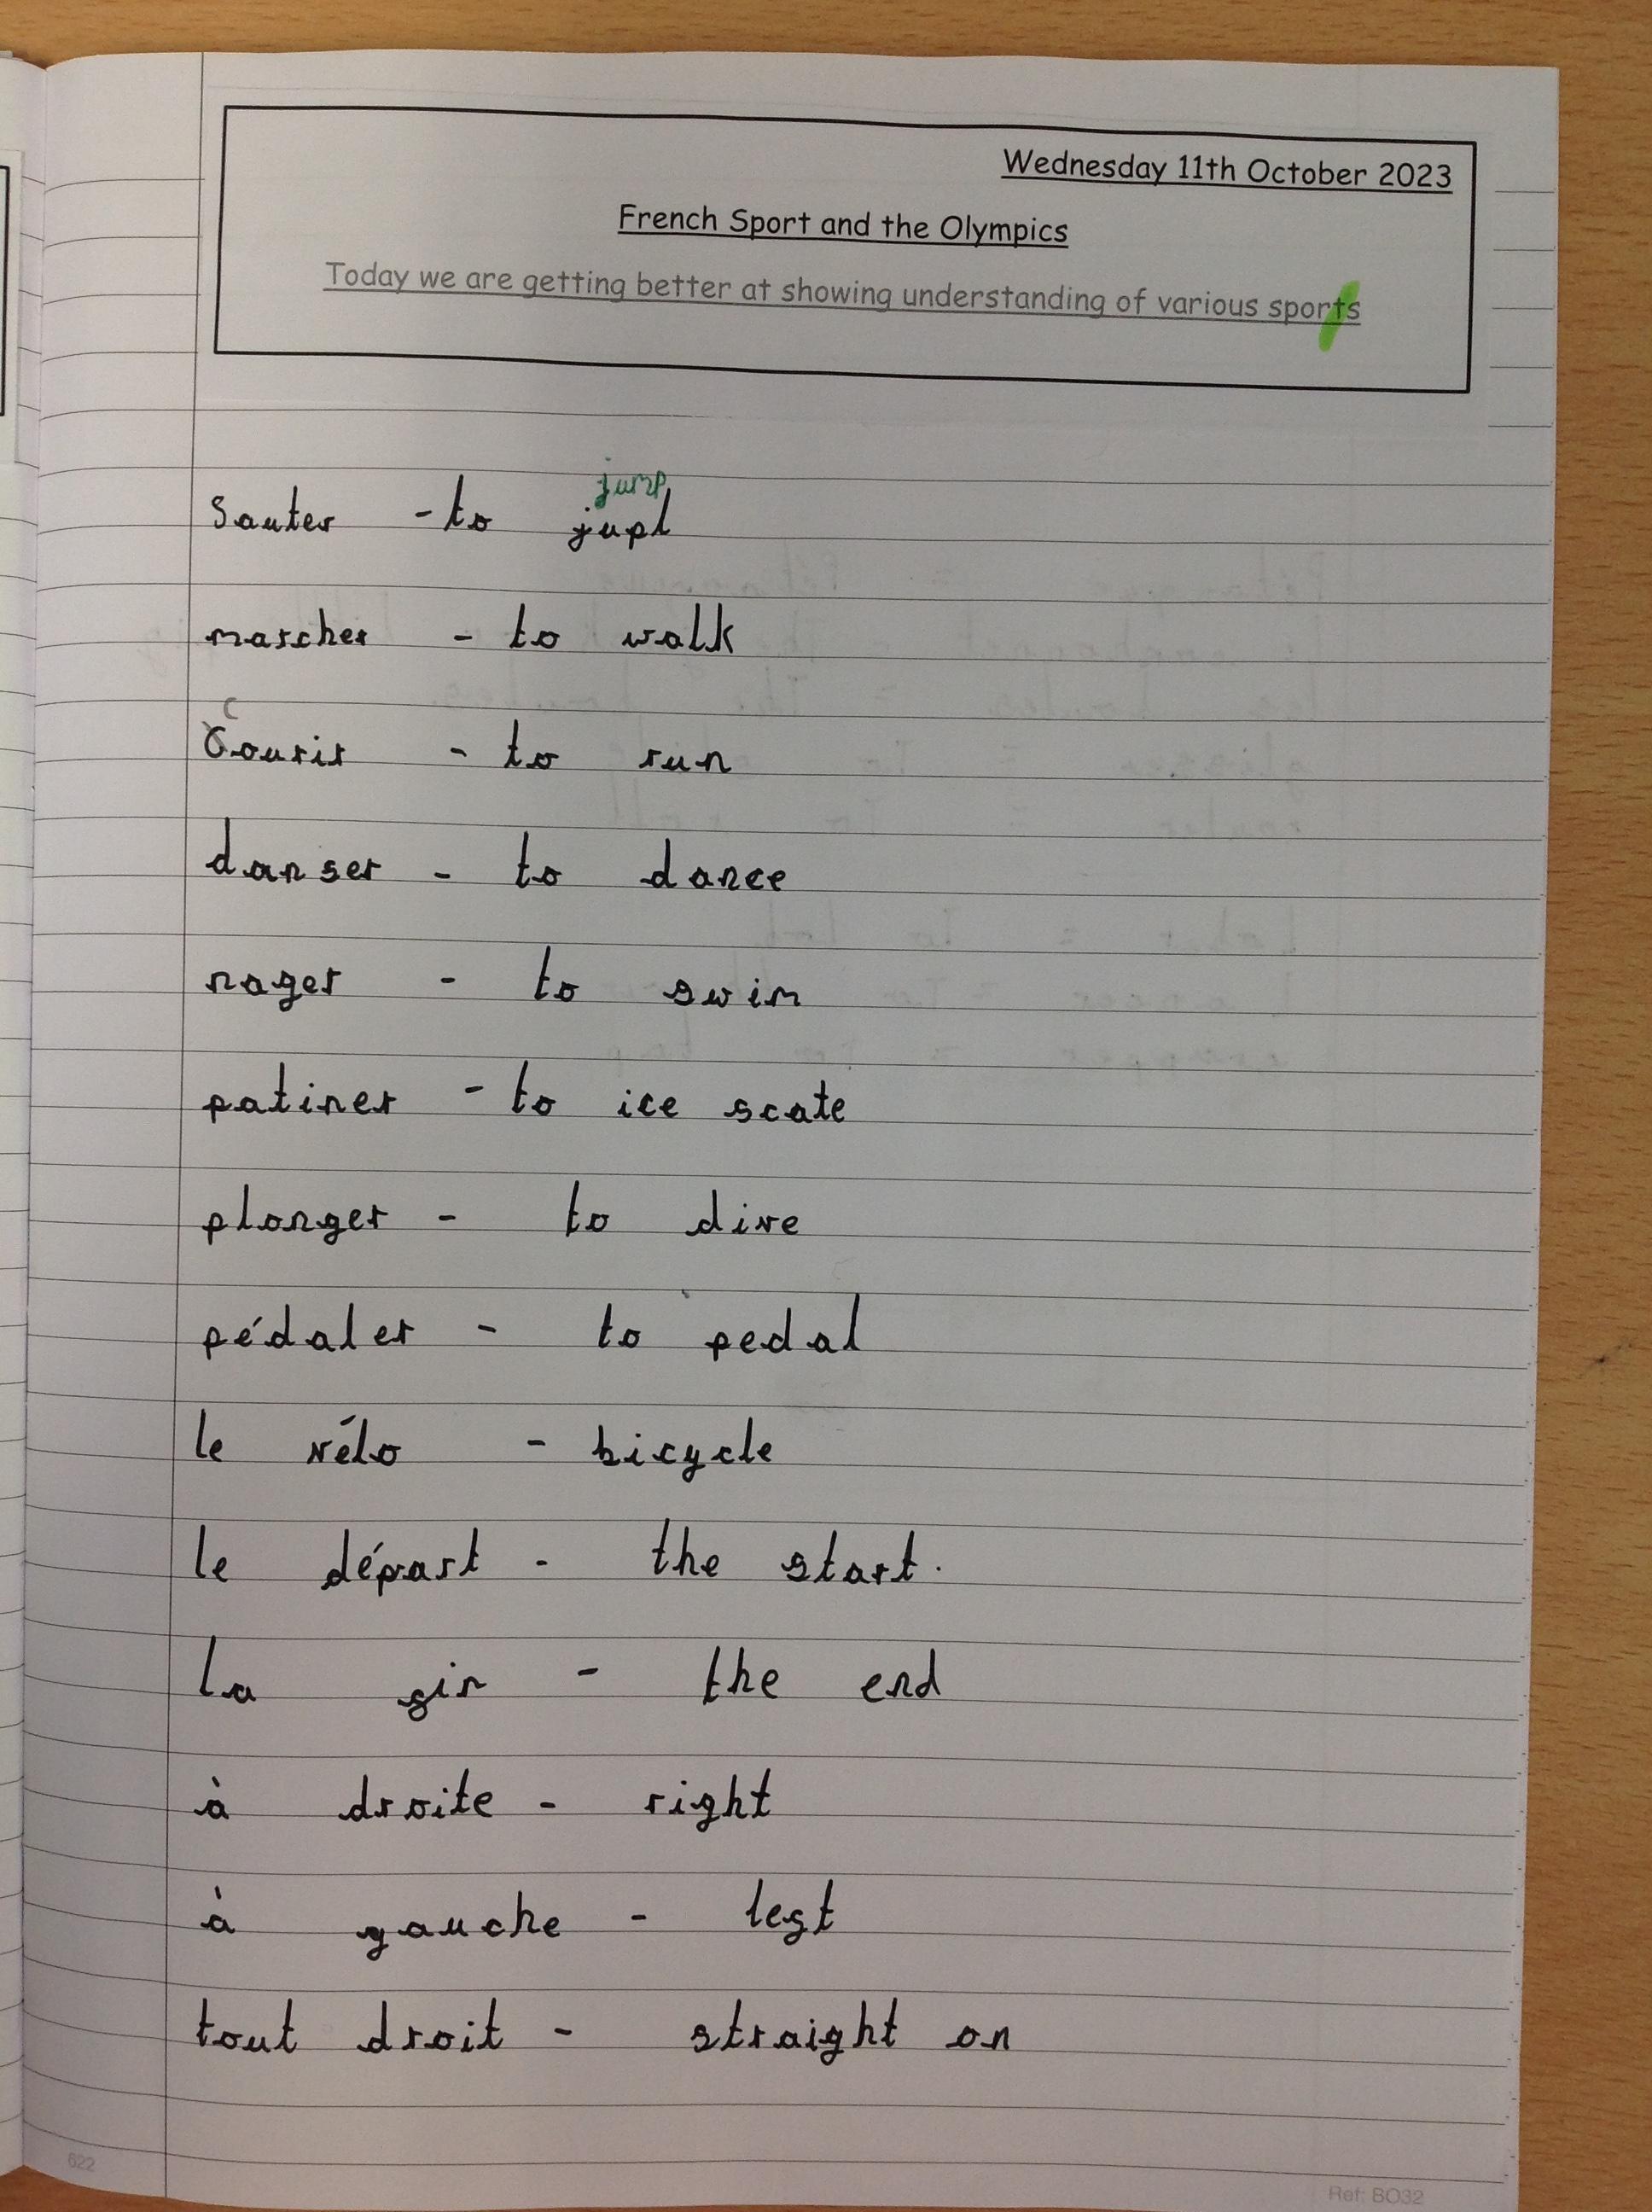 Wednesday 11th October 2023
French Sport and the Olympics
Today we are getting better at showing understanding of various sports
jump
Sauter - to jupl
marcher - to walk
c
Courir - to run
danser - to dance
nager - to swim
patiner - to ice scate
plonger - to dive
pédaler - to pedal
le vélo - bicycle
le départ - the start.
La fin - the end
à droite - right
à gauche - left
tout droit - straight on
622
Ref: BO32